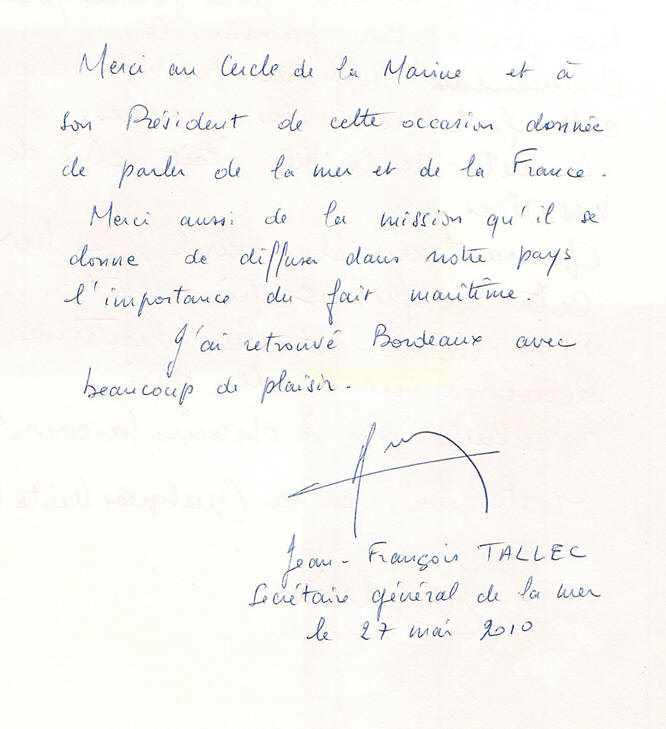 Merci au Cercle de la Marine et à
son Président de cette occasion donnée
de parler de la mer et de la France.
Merci aussi de la mission qu'il se
donne de diffuser dans notre pays
l'importance du fait maritime.
J'ai retrouvé Bordeaux avec
beaucoup de plaisir.
Jean-François TALLEC
Secrétaire général de la mer
le 27 mai 2010